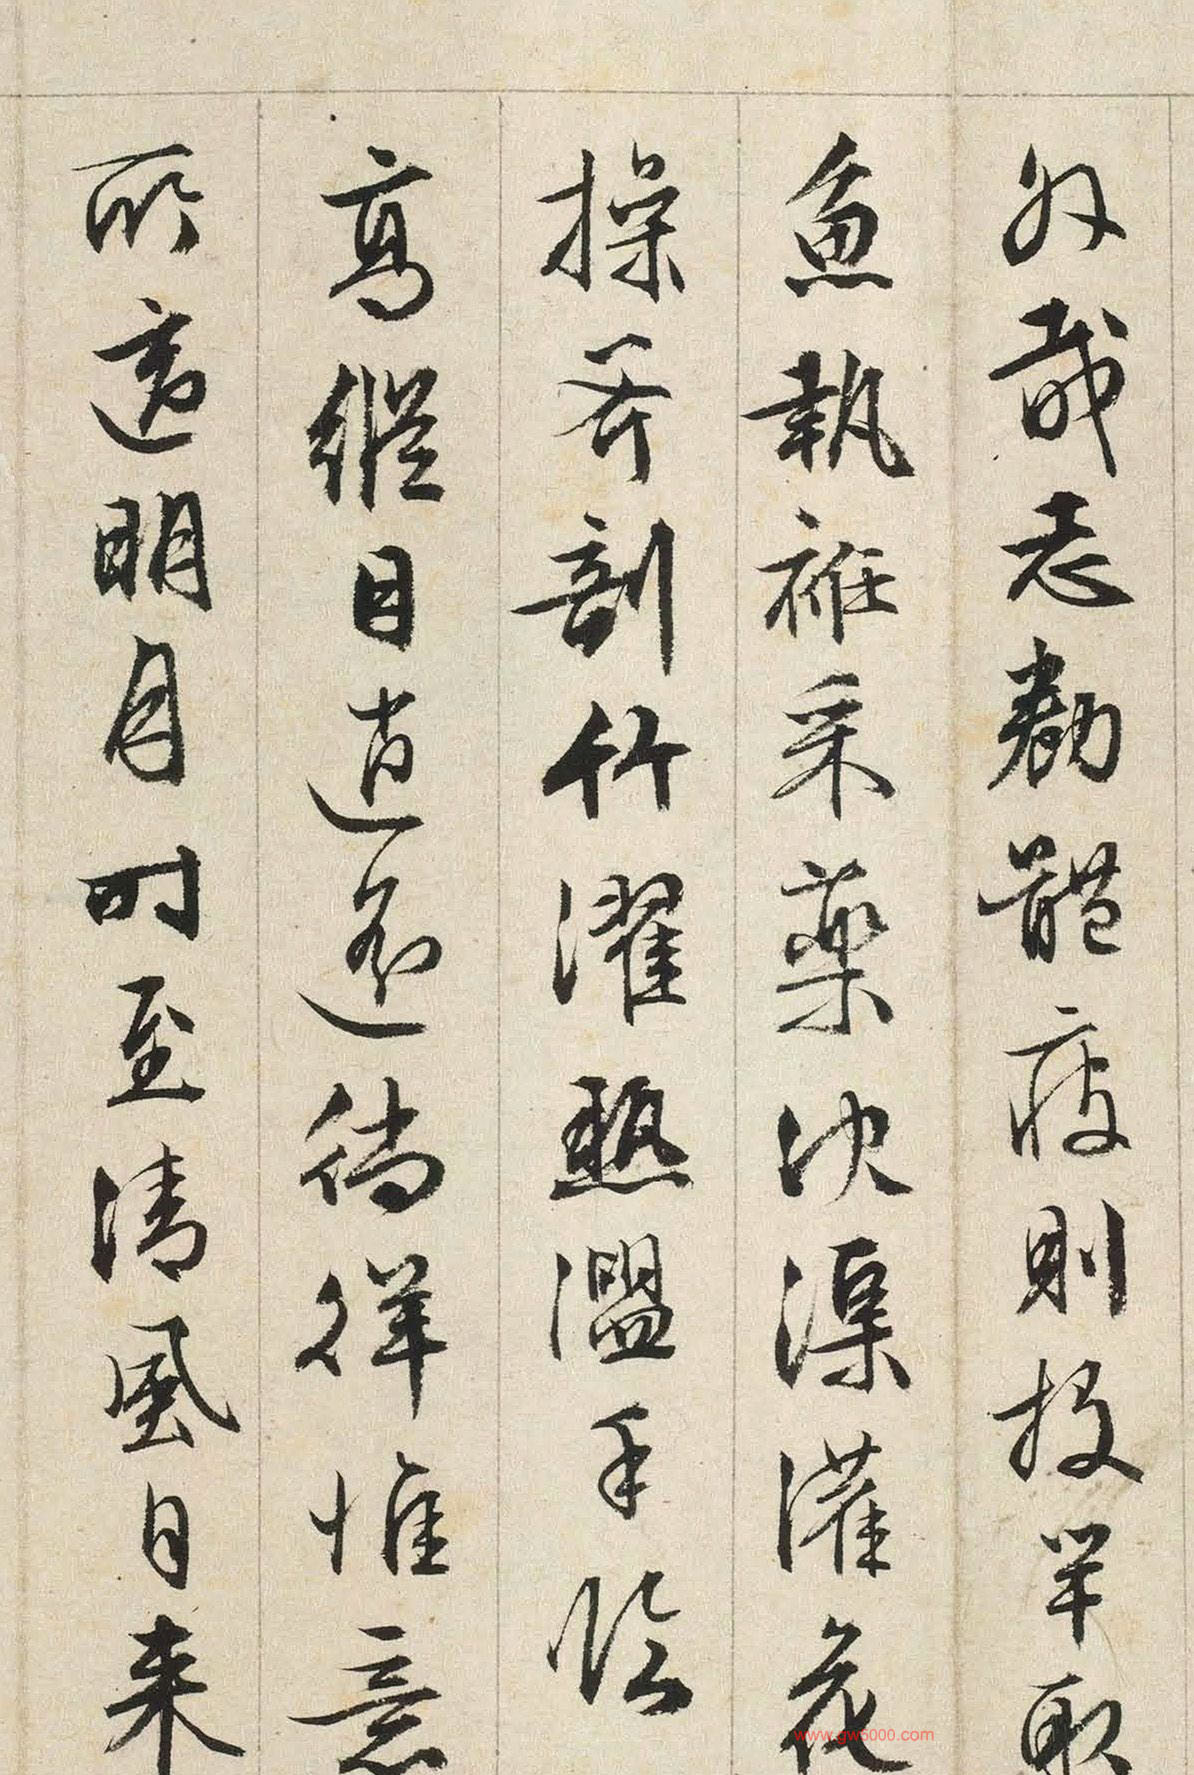 外哉志勌體疲則投竿取
魚執衽采藥決渠灌花
操斧剖竹濯熱盥手臨
高縱目逍遙徜徉惟意
所適明月时至清風自来
www.gw5000.com